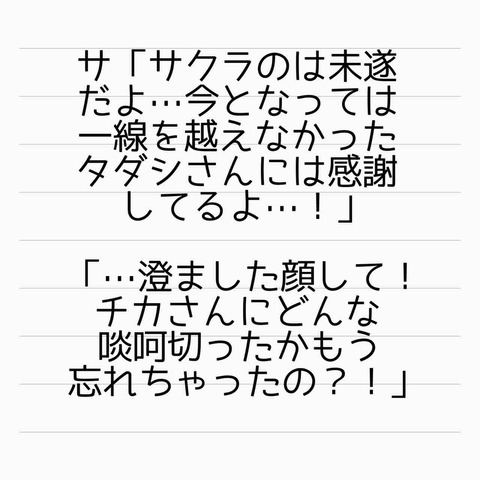 サ「サクラのは未遂
だよ…今となっては
一線を越えなかった
タダシさんには感謝
してるよ…！」
「…澄ました顔して！
チカさんにどんな
啖呵切ったかもう
忘れちゃったの？！」